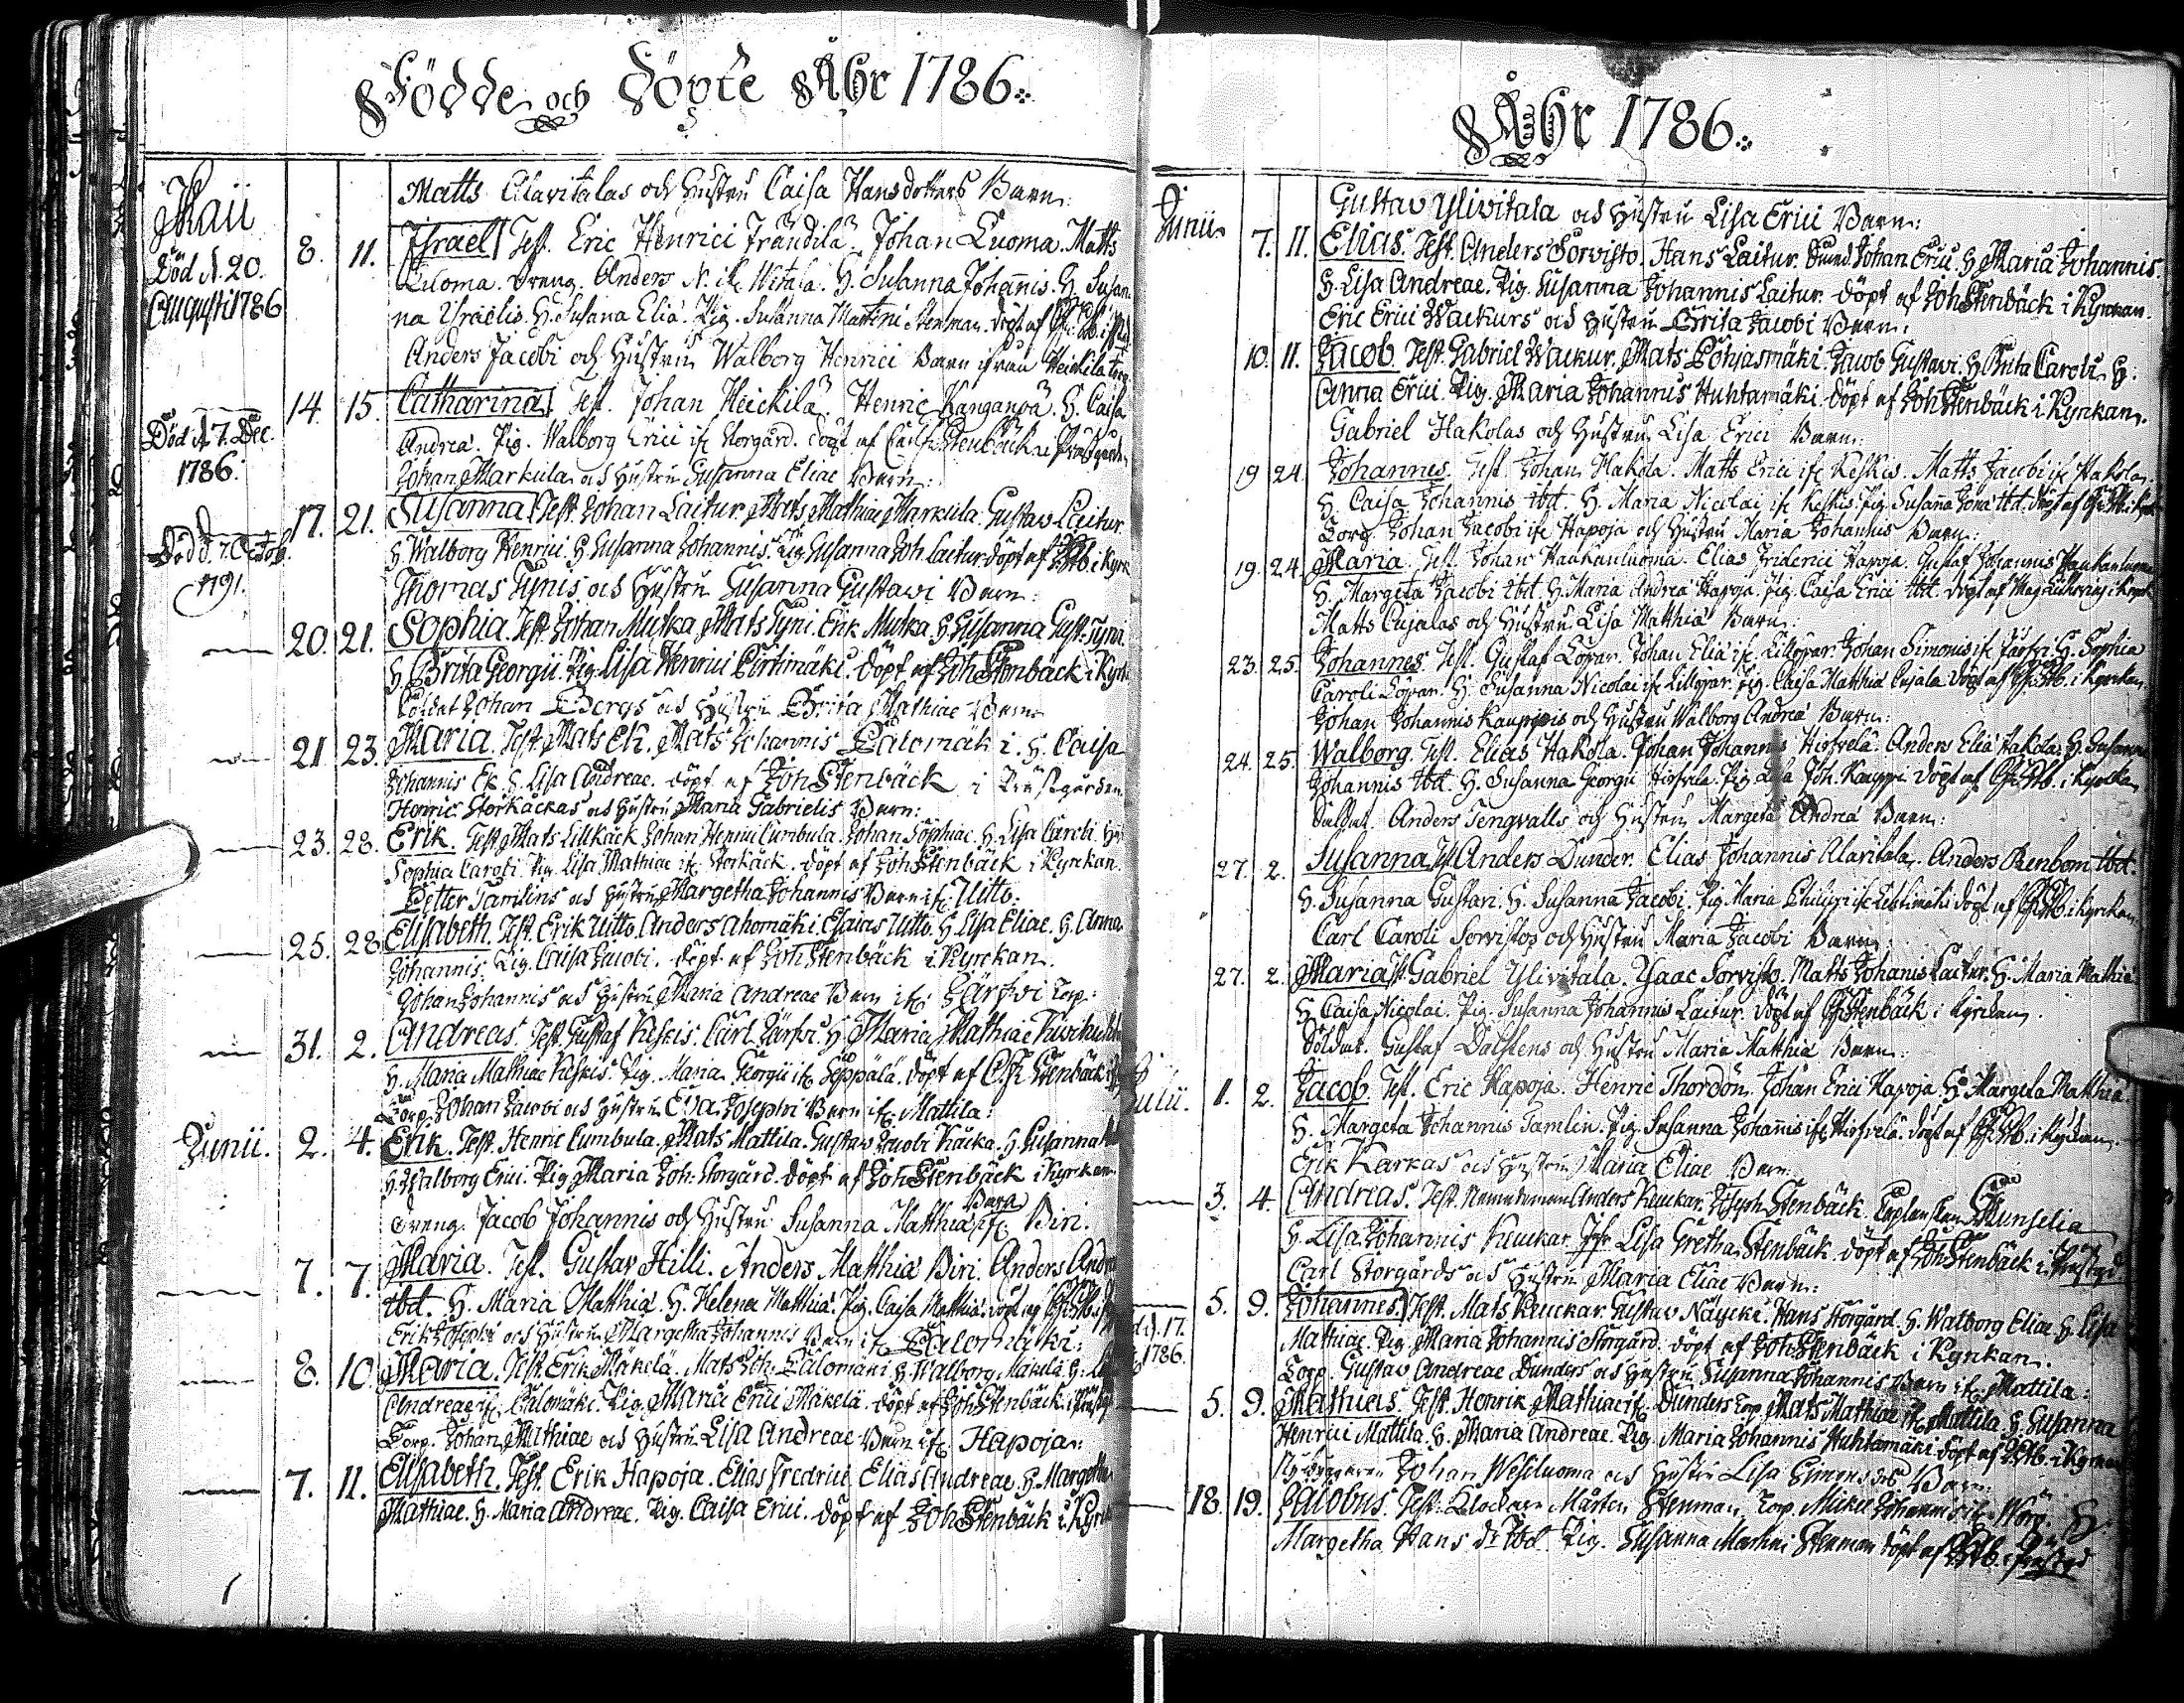 Födde och Döpte Åhr 1786.
Maii
Matts Alavitalas och Hustru Caisa Hansdotters Barn.
8. 11. Israel Test. Eric Henrici Frändilä. Johan Luoma. Matts
Död d. 20. Augusti 1786
Luoma. Dreng. Anders N. ifr. Witala. H. Susanna Johannis. H. Susan-
na Israelis. H. Susana Elia. Pig. Susanna Martini Stenman. Döpt af
Anders Jacobi och Hustru Walborg Henrici Barn ifrån Heickilä
14. 15. Catharina Test. Johan Heickilä. Henric Kanganpä. H. Caisa
Död d. 7. Dec. 1786.
Andreä. Pig. Walborg Erici ifr. Storgård. Döpt af Stenbäck i Prästgården
Johan Markula och Hustru Susanna Eliae Barn.
17. 21. Susanna Test. Johan Laitur. Mats Mathiae Markula. Gustav Laitur.
Död d. 7. Octob. 1791.
H. Walborg Henrici. H. Susanna Johannis. Pig. Susanna Joh. Laitur. döpt af J. Stb. i Kyrk
Thomas Tynis och Hustru Susanna Gustavi Barn
20. 21. Sophia. Test. Johan Mutka. Mats Tyni. Erik Mutka. H. Susanna Gust. Tyni.
H. Brita Georgii. Pig. Lisa Henrici Pirtimäki. Döpt af Joh Stenbäck i Kyrk.
Soldat Johan Edbergs och Hustru Brita Mathiae Barn
21. 23. Maria. Test. Mats Ek. Mats Johannis Palomäki. H. Caisa
Johannis Ek. H. Lisa Andreae. döpt af Joh Stenbäck i Prästgården
Henric Storkäckas och Hustru Maria Gabrielis Barn:
23. 28. Erik. Test. Mats Lillkäck. Johan Henrici Cumbula. Johan Sophiae. H. Lisa Caroli. H.
Sophia Caroli. Pig. Lisa Mathiae ifr. Storkäck. Döpt af Joh Stenbäck i Kyrkan.
Petter Sarelins och Hustru Margetha Johannis Barn ifr. Uitto.
25. 28. Elisabeth. Test. Erik Uitto. Anders Ahomäki. Esaias Uitto. H. Lisa Eliae. H. Anna
Johannis. Pig. Caisa Jacobi. Döpt af Joh Stenbäck i Kyrckan.
Johan Johannis och Hustru Maria Andreae Barn ifr. Järfvi Torp.
31. 2. Andreas. Test. Gustaf Keskis. Carl Järfvi. H. Maria Mathiae
H. Maria Mathiae Keskis. Pig. Maria Georgii ifr. Seppälä. Döpt af C. Fr. Stenbäck
Torp. Johan Jacobi och Hustru Lisa Josephi Barn ifr. Mattila:
Junii. 2. 4. Erik. Test. Henric Cumbula. Mats Mattila. Gustav Jacobi Käcka. H. Susanna
H. Walborg Erici. Pig. Maria Joh. Storgård. Döpt af Joh Stenbäck i Kyrkan.
Dreng. Jacob Johannis och Hustru Susanna Matthiä Barn ifr. Biri.
7. 7. Maria. Test. Gustav Hilli. Anders Matthiä Biri. Anders
ibd. H. Maria Matthiä. H. Helena Matthiä. Pig. Caisa Matthiä. Döpt af
Erik Josephi och Hustru Margetha Johannis Barn ifr. Palomäki:
8. 10. Maria. Test. Erik Mäkelä. Mats Joh. Palomäki. H. Walborg Mäkelä. H.
Andreae ifr. Palomäki. Pig. Maria Erici Mäkelä. Döpt af Joh Stenbäck i
Torp. Johan Mathiae och Hustru Lisa Andreae Barn ifr. Hapoja:
7. 11. Elisabeth. Test. Erik Hapoja. Elias Fredrici. Elias Andreae. H. Margetha
Mathiae. H. Maria Andreae. Pig. Caisa Erici. Döpt af Joh Stenbäck i Kyrk
Åhr 1786.
Junii.
Gustav Ylivitala och Hustru Lisa Erici Barn:
7. 11. Elias. Test. Anders Sorvisto. Hans Laitur. Johan Erici. H. Maria Johannis.
H. Lisa Andreae. Pig. Susanna Johannis Laitur. Döpt af Joh Stenbäck i Kyrkan.
Eric Erici Wackurs och Hustru Brita Jacobi Barn.
10. 11. Jacob. Test. Gabriel Wackur. Mats Pohjasmäki. Jacob Gustavi. H. Brita Caroli. H.
Anna Erici. Pig. Maria Johannis Huhtamäki. Döpt af Joh Stenbäck i Kyrkan.
Gabriel Hakolas och Hustru Lisa Erici Barn.
19. 24. Johannes. Test. Johan Hakola. Matts Erici ifr. Keskis. Matts Jacobi ifr. Hakola.
H. Caisa Johannis ibd. H. Maria Nicolai ifr. Keskis. Pig. Susanna Jona ibd. Döpt af
Torp. Johan Jacobi ifr. Hapoja och Hustru Maria Johannis Barn:
19. 24. Maria. Test. Johan Haukanluoma. Elias Fridericí Hapoja. Gustaf Johannis Haukanluoma
H. Margeta Jacobi ibd. H. Maria Andreä Hapoja. Pig. Caisa Erici ibd. Döpt af
Matts Pujalas och Hustru Lisa Matthiä Barn.
23. 25. Johannes. Test. Gustaf Lopar. Johan Elia ifr. Lillopar. Johan Simonis ifr. Järfvi. H. Sophia
Caroli Lopar. H. Susanna Nicolai ifr. Lillopar. Pig. Caisa Matthiä Pujala. Döpt af Stb. i Kyrckan.
Johan Johannis Kauppis och Hustru Walborg Andreä Barn:
24. 25. Walborg. Test. Elias Hakola. Johan Johannis Hirfvelä. Anders Elia Hakola. H. Susanna
Johannis ibd. H. Susanna Georgii Hirfvelä. Pig. Lisa Joh. Kauppi. Döpt af Stb. i Kyrckan
Soldat. Anders Tengvalls och Hustru Margeta Andreä Barn:
27. 2. Susanna. Test. Anders Dunder. Elias Johannis Alavitala. Anders Renbom ibd.
H. Susanna Gustavi. H. Susanna Jacobi. Pig. Maria Philippi ifr. Lehtimäki. Döpt af Stb. i Kyrckan
Carl Caroli Sorvistos och Hustru Maria Jacobi Barn.
27. 2. Maria. Test. Gabriel Ylivitala. Ysaac Sorvisto. Matts Johanis Laitur. H. Maria Mathiä
H. Caisa Nicolai. Pig. Susanna Johannis Laitur. Döpt af Stenbäck i Kyrckan.
Soldat. Gustaf Dalstens och Hustru Maria Matthiä Barn.
Julii. 1. 2. Jacob. Test. Eric Hapoja. Henric Thordön. Johan Erici Hapoja. H. Margeta Matthiä.
H. Margeta Johannis Tamlin. Pig. Susanna Johanis ifr. Hirfvelä. Döpt af Stb. i Kyrckan.
Erik Karkas och Hustru Maria Eliae Barn.
3. 4. Andreas. Test. Nämndeman Anders Keuckar. Joseph Stenbäck. Munselia
H. Lisa Johannis Keuckar. Jfr. Lisa Gretha Stenbäck. Döpt af Joh Stenbäck i Prästgd.
Carl Storgårds och Hustru Maria Eliae Barn:
5. 9. Johannes. Test. Mats Keuckar. Gustav Näycki. Hans Storgård. H. Walborg Eliae. H. Lisa
d. 17. 1786.
Mathiae. Pig. Maria Johannis Storgård. Döpt af Joh Stenbäck i Kyrkan.
Torp. Gustav Andreae Dunders och Hustru Susanna Johannis Barn ifr. Mattila:
5. 9. Mathias. Test. Henrik Mathiae ifr. Dunders Torp. Mats Mathiae ifr. Mattila. H. Susanna
Henrici Mattila. H. Maria Andreae. Pig. Maria Johannis Huhtamäki. Döpt af J. Stb. i Kyrkan
Nybyggaren Johan Wesiluoma och Hustru Lisa Simons dr Barn.
18. 19. Jacobus. Test. Klockaren Mårten Stenman. Torp. Mickel Johannis ifr. Worp. H.
Margetha Hans dr ibd. Pig. Susanna Martini Stenman. Döpt af Stb. i Prästgd